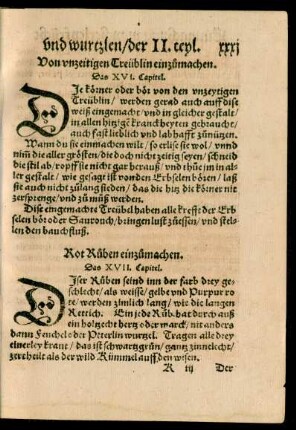 vnd wurtzlen/der II. teyl. xxxj
Von vnzeitigen Treüblin einzůmachen.
Das XVI. Capitel.
DIe körner oder bör von den vnzeytigen
Treüblin/ werden gerad auch auff dise
weiß eingemacht/vnd in gleicher gestalt
in allen hitzigẽ kranckheyten gebraucht/
auch fast lieblich vnd labhafft zůnützen.
Wann du sie einmachen wilt/ so erlise sie wol/ vnnd
nim̃ die aller grösten/ die doch nicht zeitig seyen/ schneid
die stil ab/ ropff sie nicht gar herauß/ vnd thů im in al-
ler gestalt/ wie gesagt ist von den Erbselen bören/ laß
sie auch nicht zůlang sieden/ das die hitz die körner nit
zersprenge/vnd zů můß werden.
Diße eingemachte Treübel haben alle krefft der Erb
selen bör oder Saurouch/bringen lust zůessen/ vnd stel-
len den bauchfluß.
Rot Růben einzůmachen.
Das XVII. Capitel.
DIser Růben seind inn der farb drey ge-
schlecht/ als weisse/ gelbe vnd Purpur ro
te/ werden zimlich lang/ wie die langen
Rettich. Ein jede Růb hat durch auß
ein holtzecht hertz oder marck/ nit anders
dann Fenchels oder Peterlin wurtzel. Tragen alle drey
einerley kraut/ das ist schwartzgrün/ gantz zinnelecht/
zertheilt als der wild Kümmel auff den wisen.
K iij Der